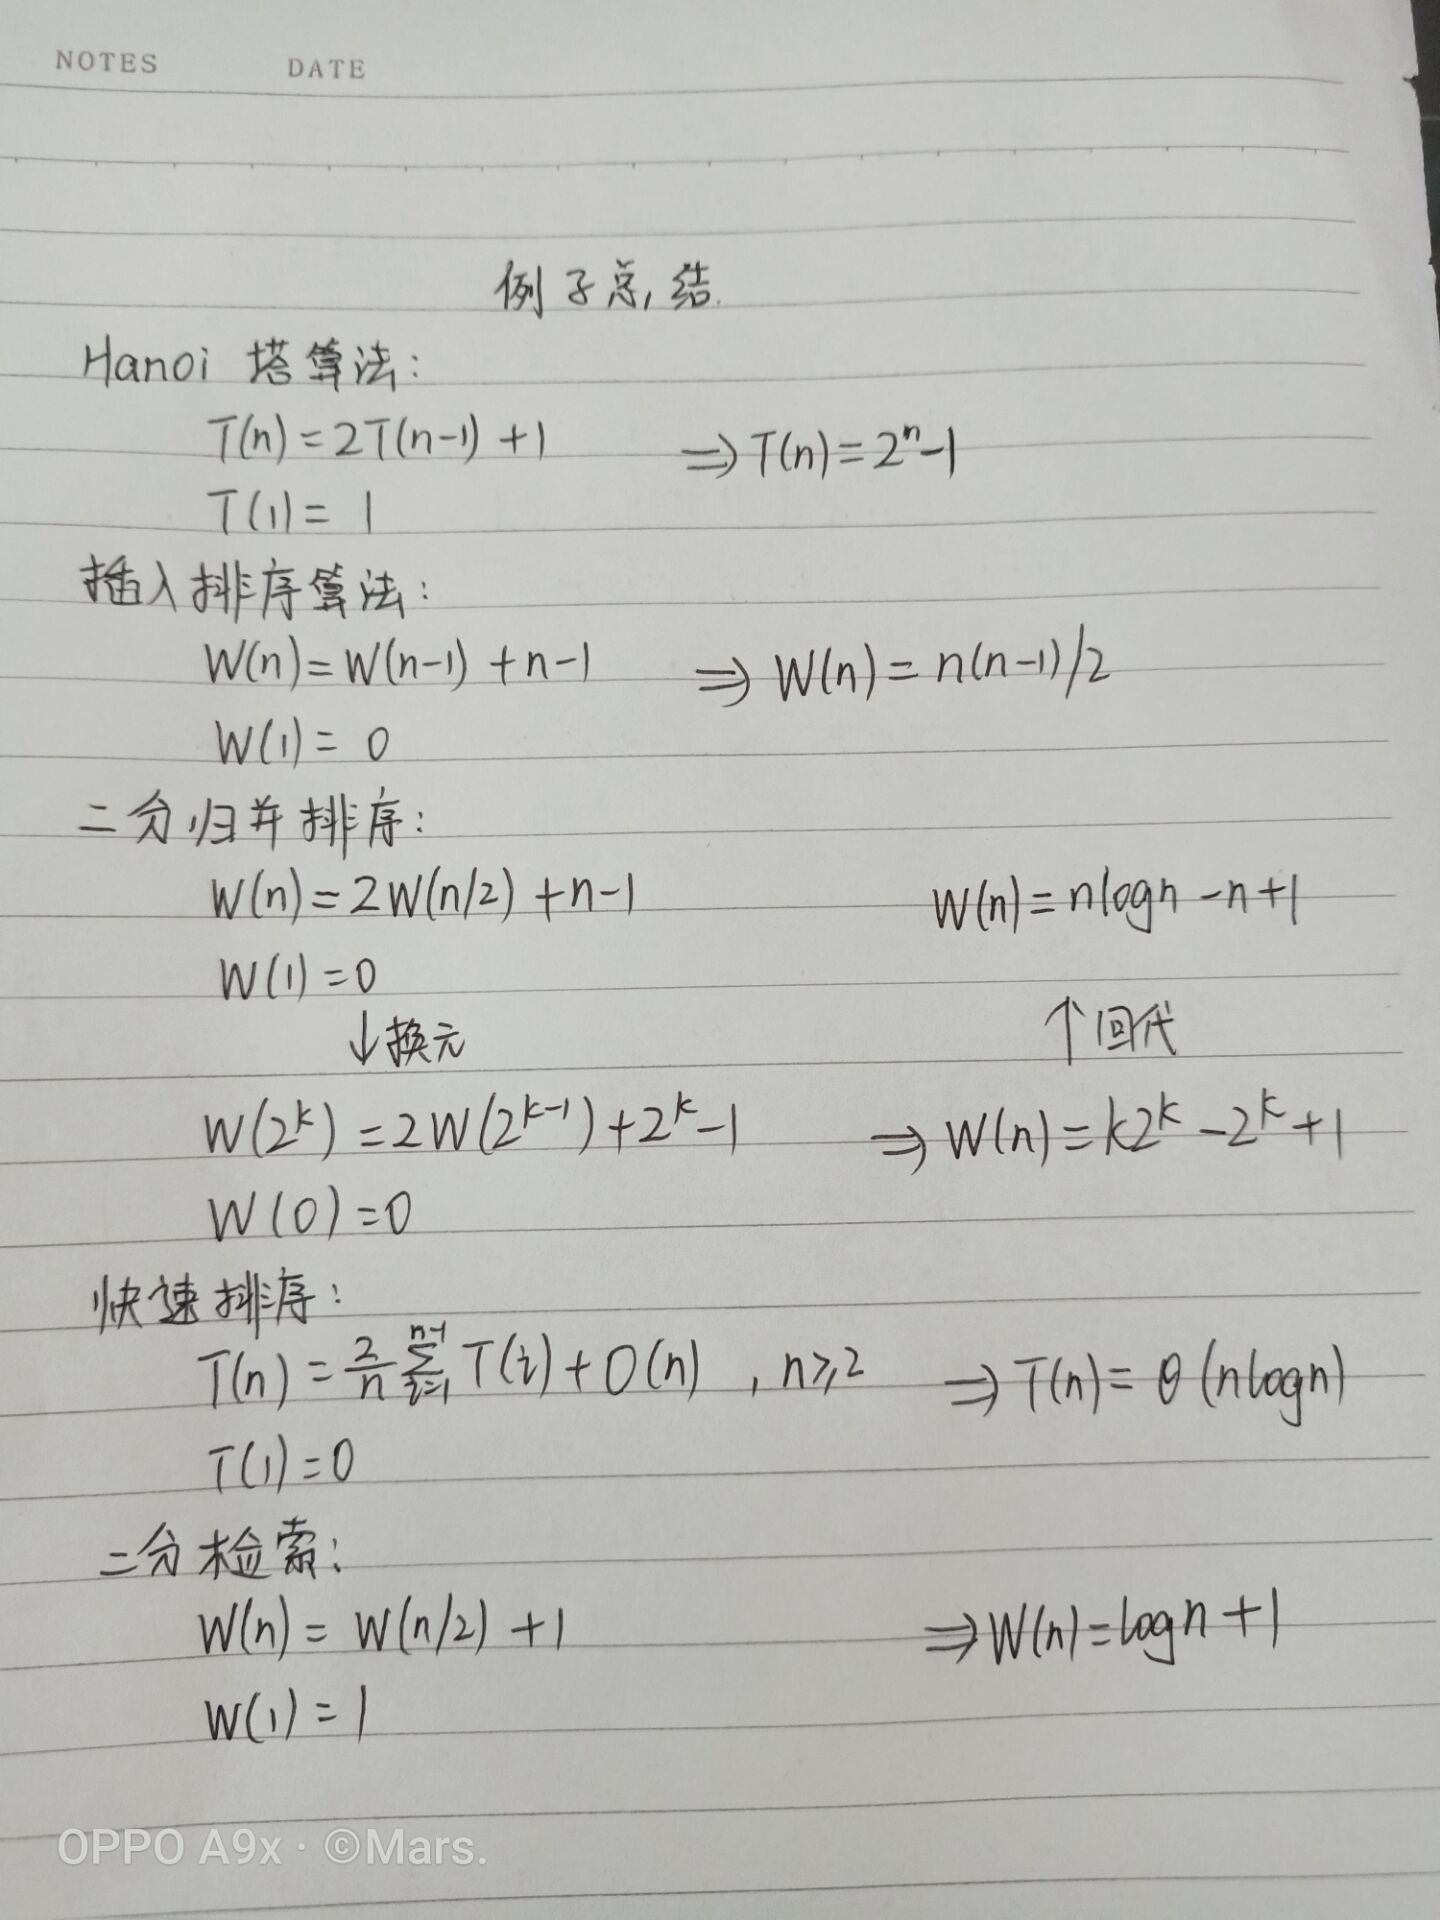 NOTES DATE
例子总结
Hanoi 塔算法:
T(n)=2T(n-1)+1 ⇒T(n)=2ⁿ-1
T(1)=1
插入排序算法:
W(n)=W(n-1)+n-1 ⇒ W(n)=n(n-1)/2
W(1)=0
二分归并排序:
W(n)=2W(n/2)+n-1 W(n)=nlogn-n+1
W(1)=0
↓换元 ↑回代
W(2^k)=2W(2^{k-1})+2^k-1 ⇒W(n)=k2^k-2^k+1
W(0)=0
快速排序:
T(n)=\frac{2}{n}\sum_{i=1}^{n-1}T(i)+O(n), n≥2 ⇒T(n)=θ(nlogn)
T(1)=0
二分检索:
W(n)=W(n/2)+1 ⇒W(n)=logn+1
W(1)=1
OPPO A9x · ©Mars.